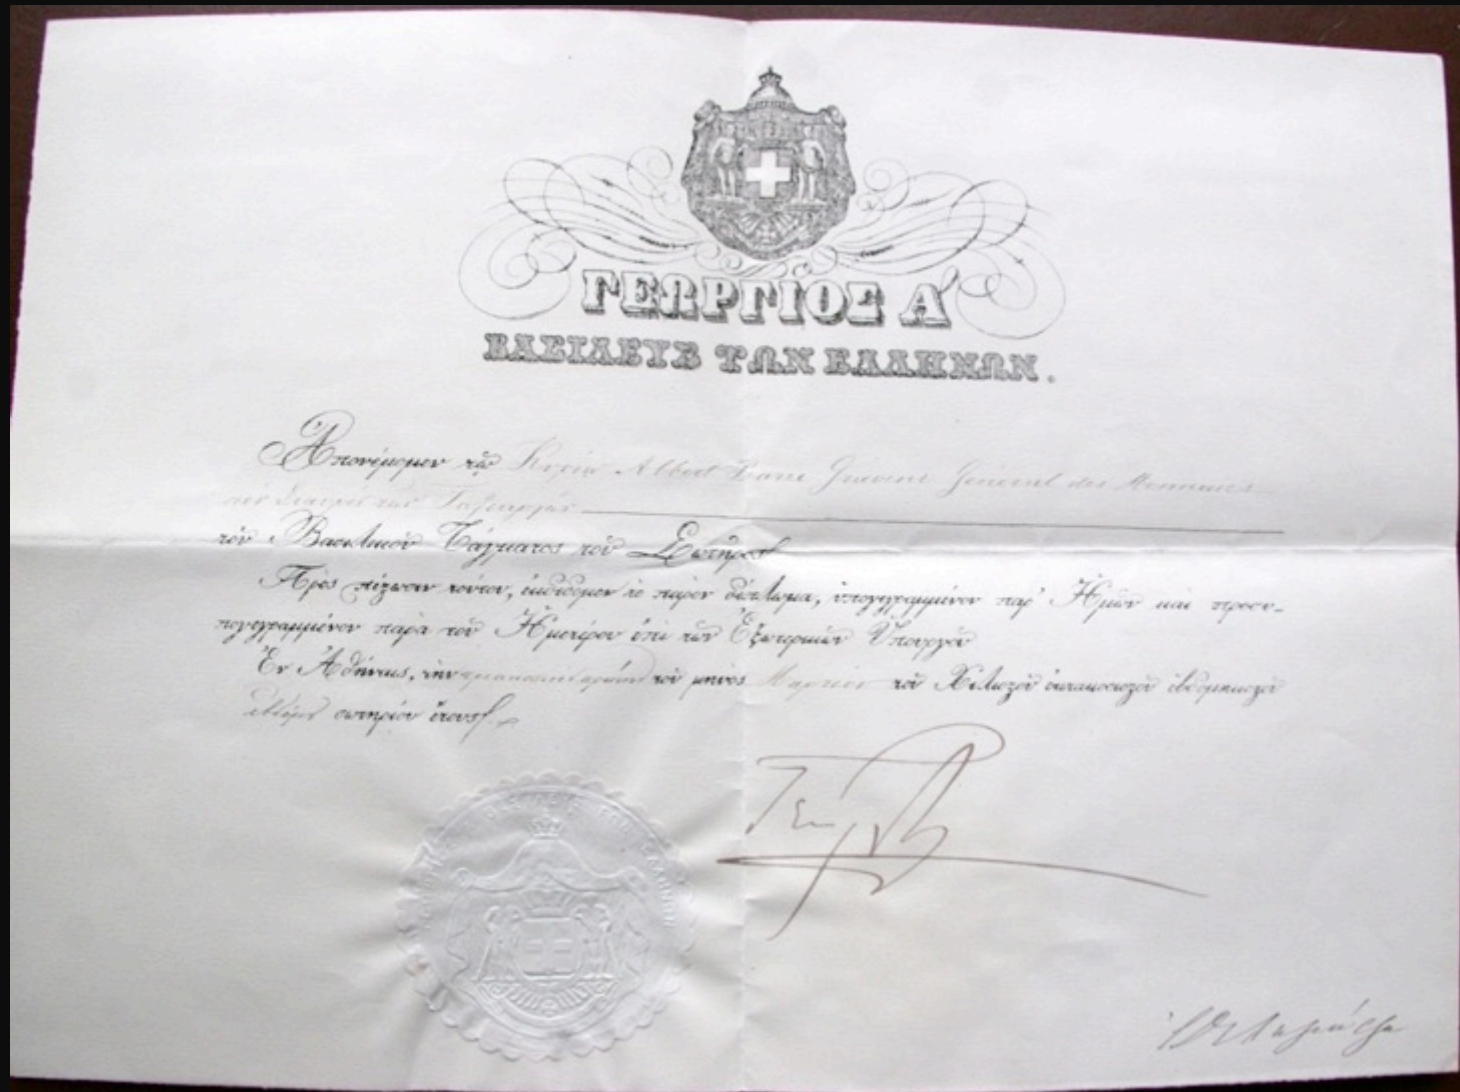 ΓΕΩΡΓΙΟΣ Α΄
ΒΑΣΙΛΕΥΣ ΤΩΝ ΕΛΛΗΝΩΝ.
Ἀπονέμομεν τῷ Κυρίῳ Albert Général des
τὸν Σταυρὸν τῶν Ταξιαρχῶν
τοῦ Βασιλικοῦ Τάγματος τοῦ Σωτῆρος
Πρὸς πίστωσιν τούτου, ἐκδίδομεν τὸ παρὸν δίπλωμα, ὑπογεγραμμένον παρ' Ἡμῶν καὶ προσυ-
πογεγραμμένον παρὰ τοῦ Ἡμετέρου ἐπὶ τῶν Ἐξωτερικῶν Ὑπουργοῦ
Ἐν Ἀθήναις, τὴν τοῦ μηνὸς Μαρτίου τοῦ Χιλιοστοῦ ὀκτακοσιοστοῦ ἑβδομηκοστοῦ
σωτηρίου ἔτους.